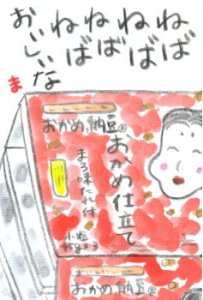 ねばねば
ねばねば
おいしいな
ま
おかめ納豆®
おかめ仕立て
まろやかたれ付
小粒
おかめ納豆®